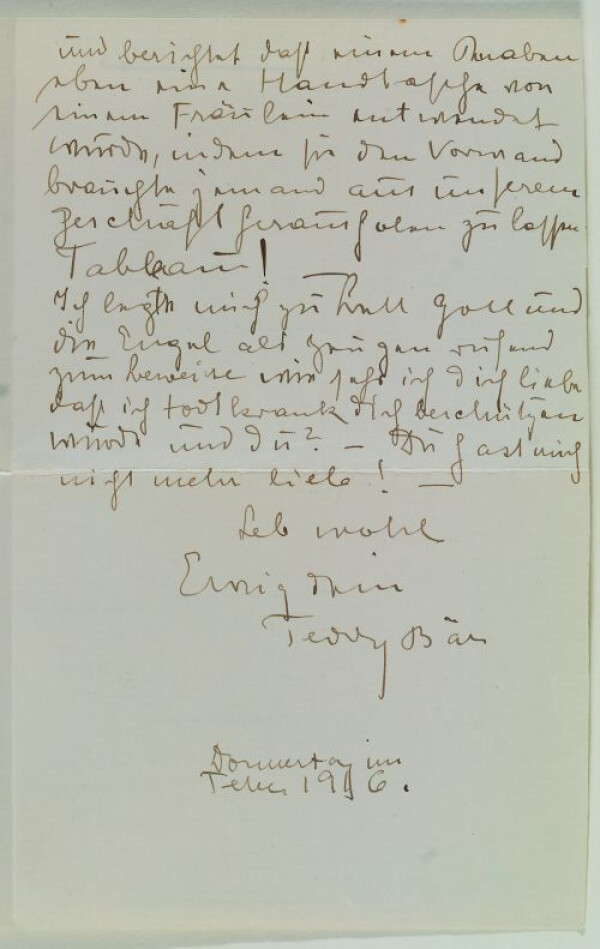 und berichtet daß einem Knaben
eben eine Handtasche von
einem Fräulein entwendet
würde, indem sie den Vorwand
brauchte jemand aus unserem
Geschäft herausholen zu lassen
Tableau!
Ich legte mich zu Bett Gott und
die Engel als Zeugen rufend
zum Beweise wie sehr ich dich liebe
daß ich todtkrank dich beschützen
würde und du? – Du hast mich
nicht mehr lieb! –
Leb wohl
Ewig dein
Teddy Bär
Donnerstag im
Feber 1916.